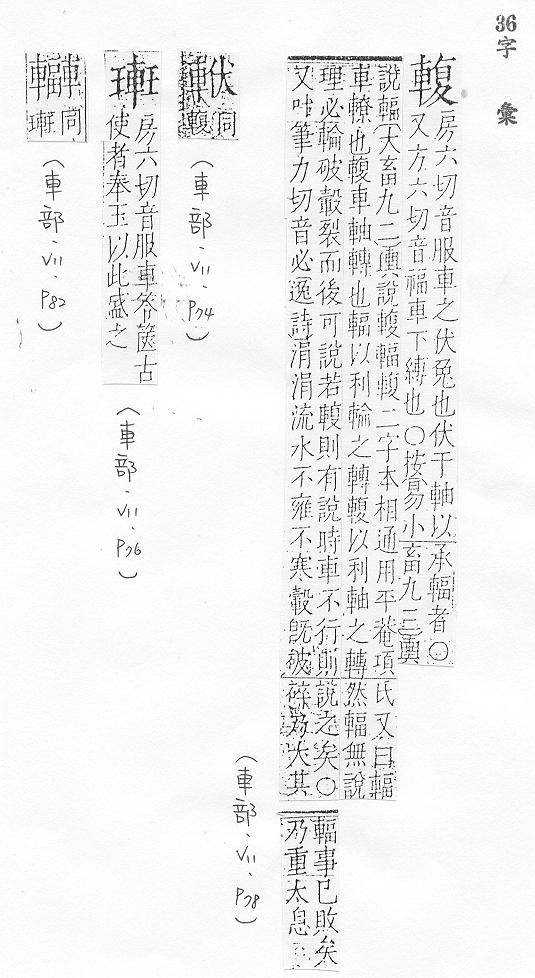 36字彙
輹
房六切音服車之伏兔也伏于軸以承輻者○
又方六切音福車下縛也○按易小畜九三輿
說輻大畜九二輿說輹輻輹二字本相通用平菴項氏又曰輻
車轑也輹車軸轉也輻以利輪之轉輹以利軸之轉然輻無說
理必輪破轂裂而後可說若輹則有說時車不行則說之矣○
又叶筆力切音必逸詩涓涓流水不雍不寒轂旣破碎乃大其
輻事已敗矣
乃重太息
(車部、VII、P78)
軷同輹
(車部、VII、P74)
房六切音服車笭篋古
使者奉玉以此盛之
(車部、VII、P76)
同
(車部、VII、P82)